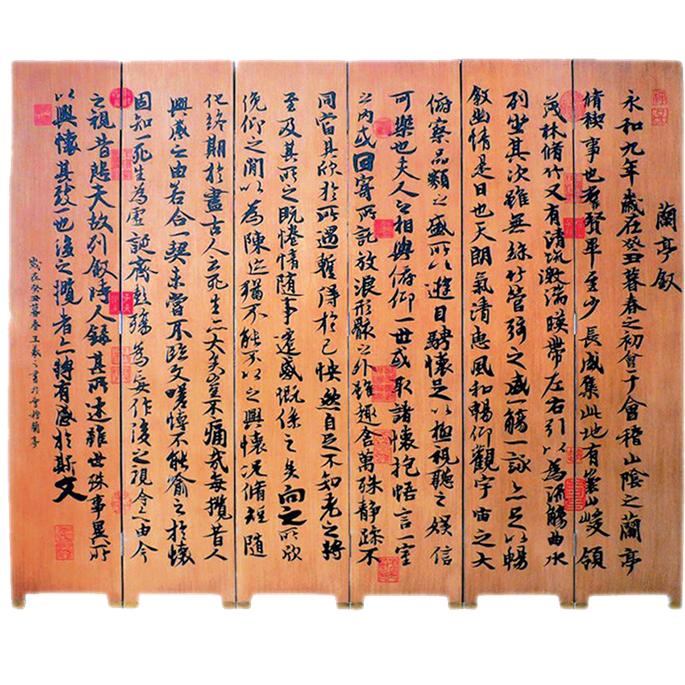 蘭亭敘
永和九年歲在癸丑暮春之初會于會稽山陰之蘭亭
脩稧事也羣賢畢至少長咸集此地有崇山峻領
茂林脩竹又有清流激湍暎帶左右引以為流觴曲水
列坐其次雖無絲竹管弦之盛一觴一詠亦足以暢
敘幽情是日也天朗氣清惠風和暢仰觀宇宙之大
俯察品類之盛所以遊目騁懷足以極視聽之娛信
可樂也夫人之相與俯仰一世或取諸懷抱悟言一室
之內或因寄所託放浪形骸之外雖趣舍萬殊靜躁不
同當其欣於所遇暫得於己怏然自足不知老之將
至及其所之既惓情隨事遷感慨係之矣向之所欣
俛仰之閒以為陳迹猶不能不以之興懷況脩短隨
化終期於盡古人云死生亦大矣豈不痛哉每攬昔人
興感之由若合一契未嘗不臨文嗟悼不能喻之於懷
固知一死生為虛誕齊彭殤為妄作後之視今亦由今
之視昔悲夫故列敘時人錄其所述雖世殊事異所
以興懷其致一也後之攬者亦將有感於斯文
歲在癸丑暮春王羲之書於會稽蘭亭